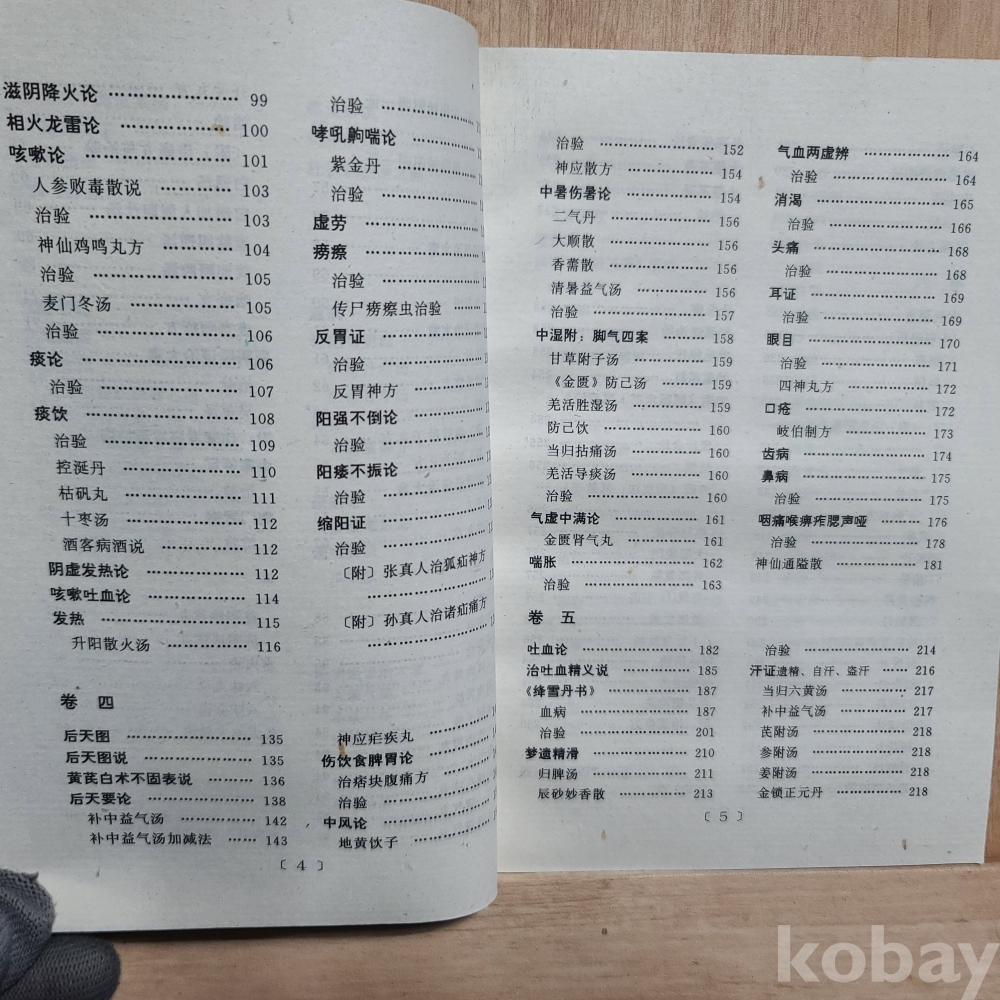 滋阴降火论 …………………… 99
相火龙雷论 ……………… 100
咳嗽论 ……………………… 101
人参败毒散说 ……………… 103
治验 ……………………… 103
神仙鸡鸣丸方 ……………… 104
治验 ……………………… 105
麦门冬汤 ………………… 105
治验 ……………………… 106
痰论 ……………………… 106
治验 ……………………… 107
痰饮 ……………………… 108
治验 ……………………… 109
控涎丹 …………………… 110
枯矾丸 …………………… 111
十枣汤 …………………… 112
酒客病酒说 ……………… 112
阴虚发热论 ……………… 112
咳嗽吐血论 ……………… 114
发热 ……………………… 115
升阳散火汤 ……………… 116
治验 ………………
哮吼齁喘论 ………………
紫金丹 ………………
治验 ………………
虚劳 ………………
痨瘵 ………………
治验 ………………
传尸痨瘵虫治验 …………
反胃证 ………………
治验 ………………
反胃神方 ………………
阳强不倒论 ………………
治验 ………………
阳痿不振论 ………………
治验 ………………
缩阳证 ………………
治验 ………………
〔附〕张真人治狐疝神方
………………
〔附〕孙真人治诸疝痛方
………………
卷 四
后天图 …………………… 135
后天图说 ………………… 135
黄芪白术不固表说 ……… 136
后天要论 ………………… 138
补中益气汤 ……………… 142
补中益气汤加减法 …… 143
神应疟疾丸 ………………
伤饮食脾胃论 ……………
治痞块腹痛方 ……………
治验 ………………
中风论 ………………
地黄饮子 ………………
〔 4 〕
治验 ……………………… 152
神应散方 ………………… 154
中暑伤暑论 ……………… 154
二气丹 …………………… 156
大顺散 …………………… 156
香薷散 …………………… 156
清暑益气汤 ……………… 156
治验 ……………………… 157
中湿附：脚气四案 ……… 158
甘草附子汤 ……………… 159
《金匮》防己汤 ………… 159
羌活胜湿汤 ……………… 159
防己饮 …………………… 160
当归拈痛汤 ……………… 160
羌活导痰汤 ……………… 160
治验 ……………………… 160
气虚中满论 ……………… 161
金匮肾气丸 ……………… 161
喘胀 ……………………… 162
治验 ……………………… 163
气血两虚辨 ……………… 164
治验 ……………………… 164
消渴 ……………………… 165
治验 ……………………… 166
头痛 ……………………… 168
治验 ……………………… 168
耳证 ……………………… 169
治验 ……………………… 169
眼目 ……………………… 170
治验 ……………………… 171
四神丸方 ………………… 172
口疮 ……………………… 172
岐伯制方 ………………… 173
齿病 ……………………… 174
鼻病 ……………………… 175
治验 ……………………… 175
咽痛喉痹痄腮声哑 ……… 176
治验 ……………………… 178
神仙通隘散 ……………… 181
卷 五
吐血论 …………………… 182
治吐血精义说 …………… 185
《绛雪丹书》 …………… 187
血病 ……………………… 187
治验 ……………………… 201
梦遗精滑 ………………… 210
归脾汤 …………………… 211
辰砂妙香散 ……………… 213
治验 ……………………… 214
汗证遗精、自汗、盗汗 …… 216
当归六黄汤 ……………… 217
补中益气汤 ……………… 217
芪附汤 …………………… 218
参附汤 …………………… 218
姜附汤 …………………… 218
金锁正元丹 ……………… 218
〔 5 〕
kobay